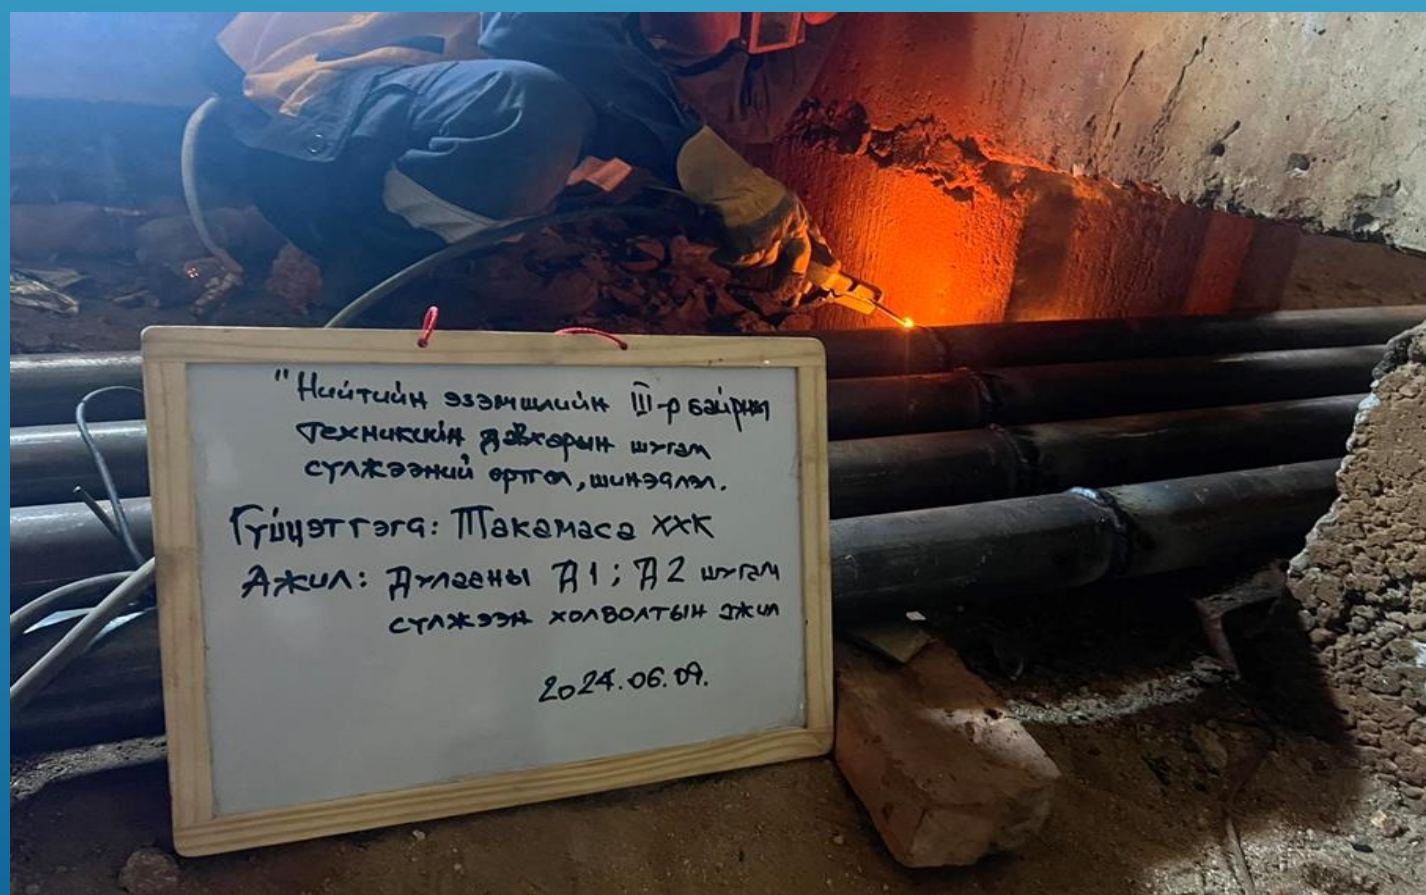 "Нийтийн эзэмшлийн III-р байрны
техникийн давхарын шугам
сүлжээний өртгөл, шинэчлэл.
Гүйцэтгэгч: Такамаса ХХК
Ажил: Дулааны Д1; Д2 шугам
сүлжээн холболтын ажил
2024.06.09.